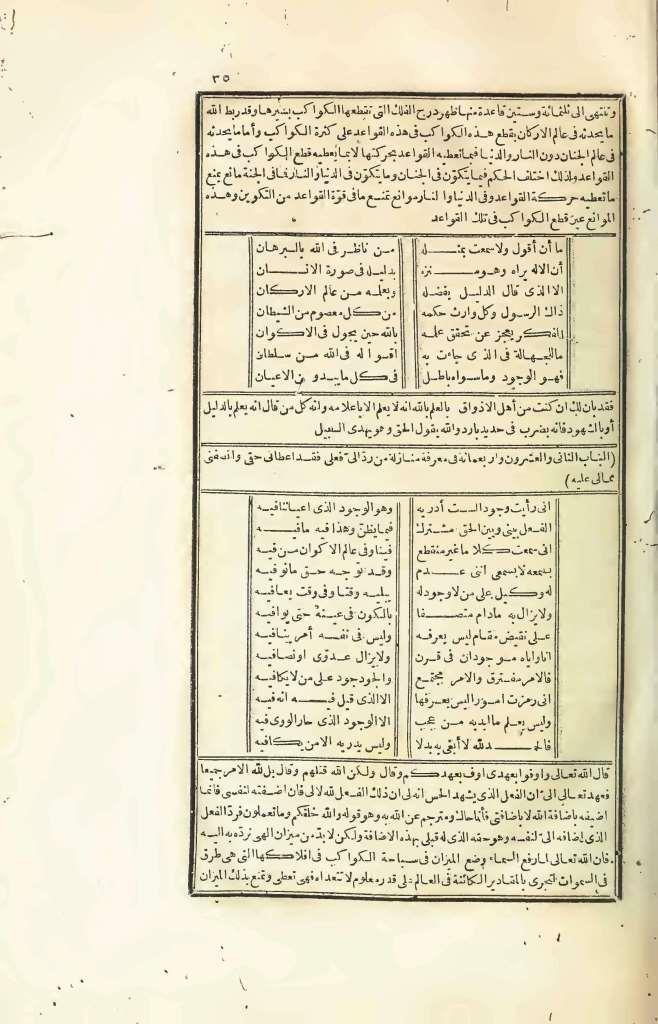 ٣٥
وتنتهى الى ثلثمائة وستين قاعدة منها ظهر درج الفلك التى تقطعها الكواكب بسيرها وقدربط الله
ما يحدثه فى عالم الاركان بقطع هذه الكواكب فى هذه القواعد على كثرة الكواكب وأما ما يحدثه
فى عالم الجنان دون النار والدنيا فبما تعطيه القواعد بحركتها لا بما يعطيه قطع الكواكب فى هذه
القواعد ولذلك اختلف الحكم فيما يتكون فى الجنان وما يتكون فى الدنيا والنار فما فى الجنة مانع يمنع
ما تعطيه حركة القواعد وفى الدنيا والنار موانع تمنع ما فى قوة القواعد من التكوين وهذه
الموانع عين قطع الكواكب فى تلك القواعد
ما أن أقول ولا سمعت بمثله من ناظر فى الله بالبرهان
أن الاله يراه وهو منزه بدليله فى صورة الانسان
الا الذى قال الدليل بفضله وبعلمه من عالم الاركان
ذاك الرسول وكل وارث حكمه من كل معصوم من الشيطان
الفكر يعجز عن تحقق علمه بالله حين يجول فى الاكوان
ما للجهالة فى الذى جاءت به اقواله فى الله من سلطان
فهو الوجود وما سواه باطل فى كل ما يبدو من الاعيان
فقد بان لك ان كنت من أهل الاذواق بالعلم بالله انه لا يعلم الا باعلامه وانه كل من قال انه يعلم بالدليل
أو بالشهود فانه يضرب فى حديد بارد والله يقول الحق وهو يهدى السبيل
(الباب الثانى والعشرون واربعمائة فى معرفة منازلة من رد الى فعلى فقد اعطانى حقى وانصفنى
مما لى عليه)
انى رأيت وجودا لست أدريه وهو الوجود الذى اعياننا فيه
الفعل بينى وبين الحق مشترك فيما يظن وهذا فيه ما فيه
انى سمعت كلاما غير منقطع فينا وفى عالم الاكوان من فيه
يسمعه لا بسمعى اننى عدم وقد توجه حق ما نوفيه
له وكيل على من لا وجود له يبليه وقتا وفى وقت يعافيه
ولا يزال به مادام متصفا بالكون فى عينه حتى يوافيه
على نقيض مقام ليس يعرفه وليس فى نفسه أمر ينافيه
انا واياه موجودان فى قرن ولا يزال عدوى اوئصافيه
فالامر مفترق والامر مجتمع والجود جود على من لا يكافيه
انى رمزت امورا ليس يعرفها الا الذى قيل فيه انه فيه
وليس يعلم ما ابديه من عجب الا الوجود الذى حار الورى فيه
فالحمد لله لا أبقى به بدلا وليس يدريه الا من يكافيه
قال الله تعالى واوفوا بعهدى اوف بعهدكم وقال ولكن الله قتلهم وقال بل لله الامر جميعا
فعهد تعالى الى ان الفعل الذى يشهد الحس انه لى ان ذلك الفعل لله لا لى فان اضفته لنفسى فانما
اضيفه باضافة الله لا باضافتى فأنا حاك ومترجم عن الله به وهو قوله والله خلقكم وما تعملون فرد الفعل
الذى اضافه الى لنفسه وهو حقه الذى له قبلى بهذه الاضافة ولكن لا بد من ميزان الهى نرده به اليه
فان الله تعالى لما رفع السماء وضع الميزان فى سباحة الكواكب فى افلاكها التى هى طرق
فى السموات لتجرى بالمقادير الكائنة فى العالم على قدر معلوم لا تتعداه فهى تعطى وتمنع بذلك الميزان